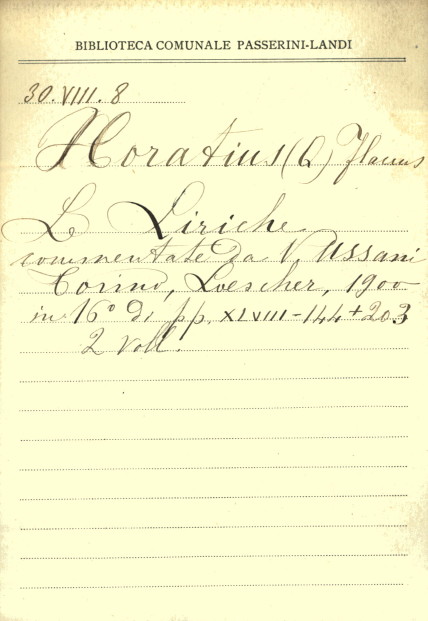 BIBLIOTECA COMUNALE PASSERINI-LANDI
30.VIII.8
Horatius (Q) Flacus
Le Liriche
commentate da V. Ussani
Torino, Loescher, 1900
in 16° di pp. XLVIII-144+203
2 voll.